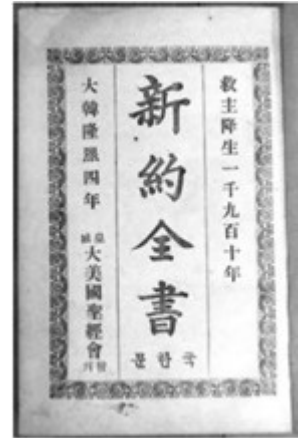 救主降生一千九百十年
新約全書
국한문
大韓隆熙四年
皇城
大美國聖經會